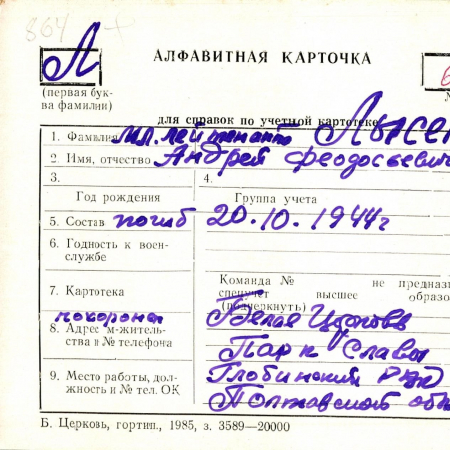 864 +
Л
АЛФАВИТНАЯ КАРТОЧКА
(первая бук-
ва фамилии)
для справок по учетной картотеке
1. Фамилия мл. лейтенант
2. Имя, отчество Андрей Феодосьевич
3.
4.
Год рождения
Группа учета
5. Состав погиб 20.10.1944г
6. Годность к воен-
службе
Команда №
не предназ
7. Картотека
спецучет высшее образо
(подчеркнуть)
похоронен
Белая Церковь
8. Адрес м-житель-
ства и № телефона
Парк Славы
9. Место работы, дол-
жность и № тел. ОК
Глобинский
Полтавской обл
Б. Церковь, гортип., 1985, з. 3589—20000